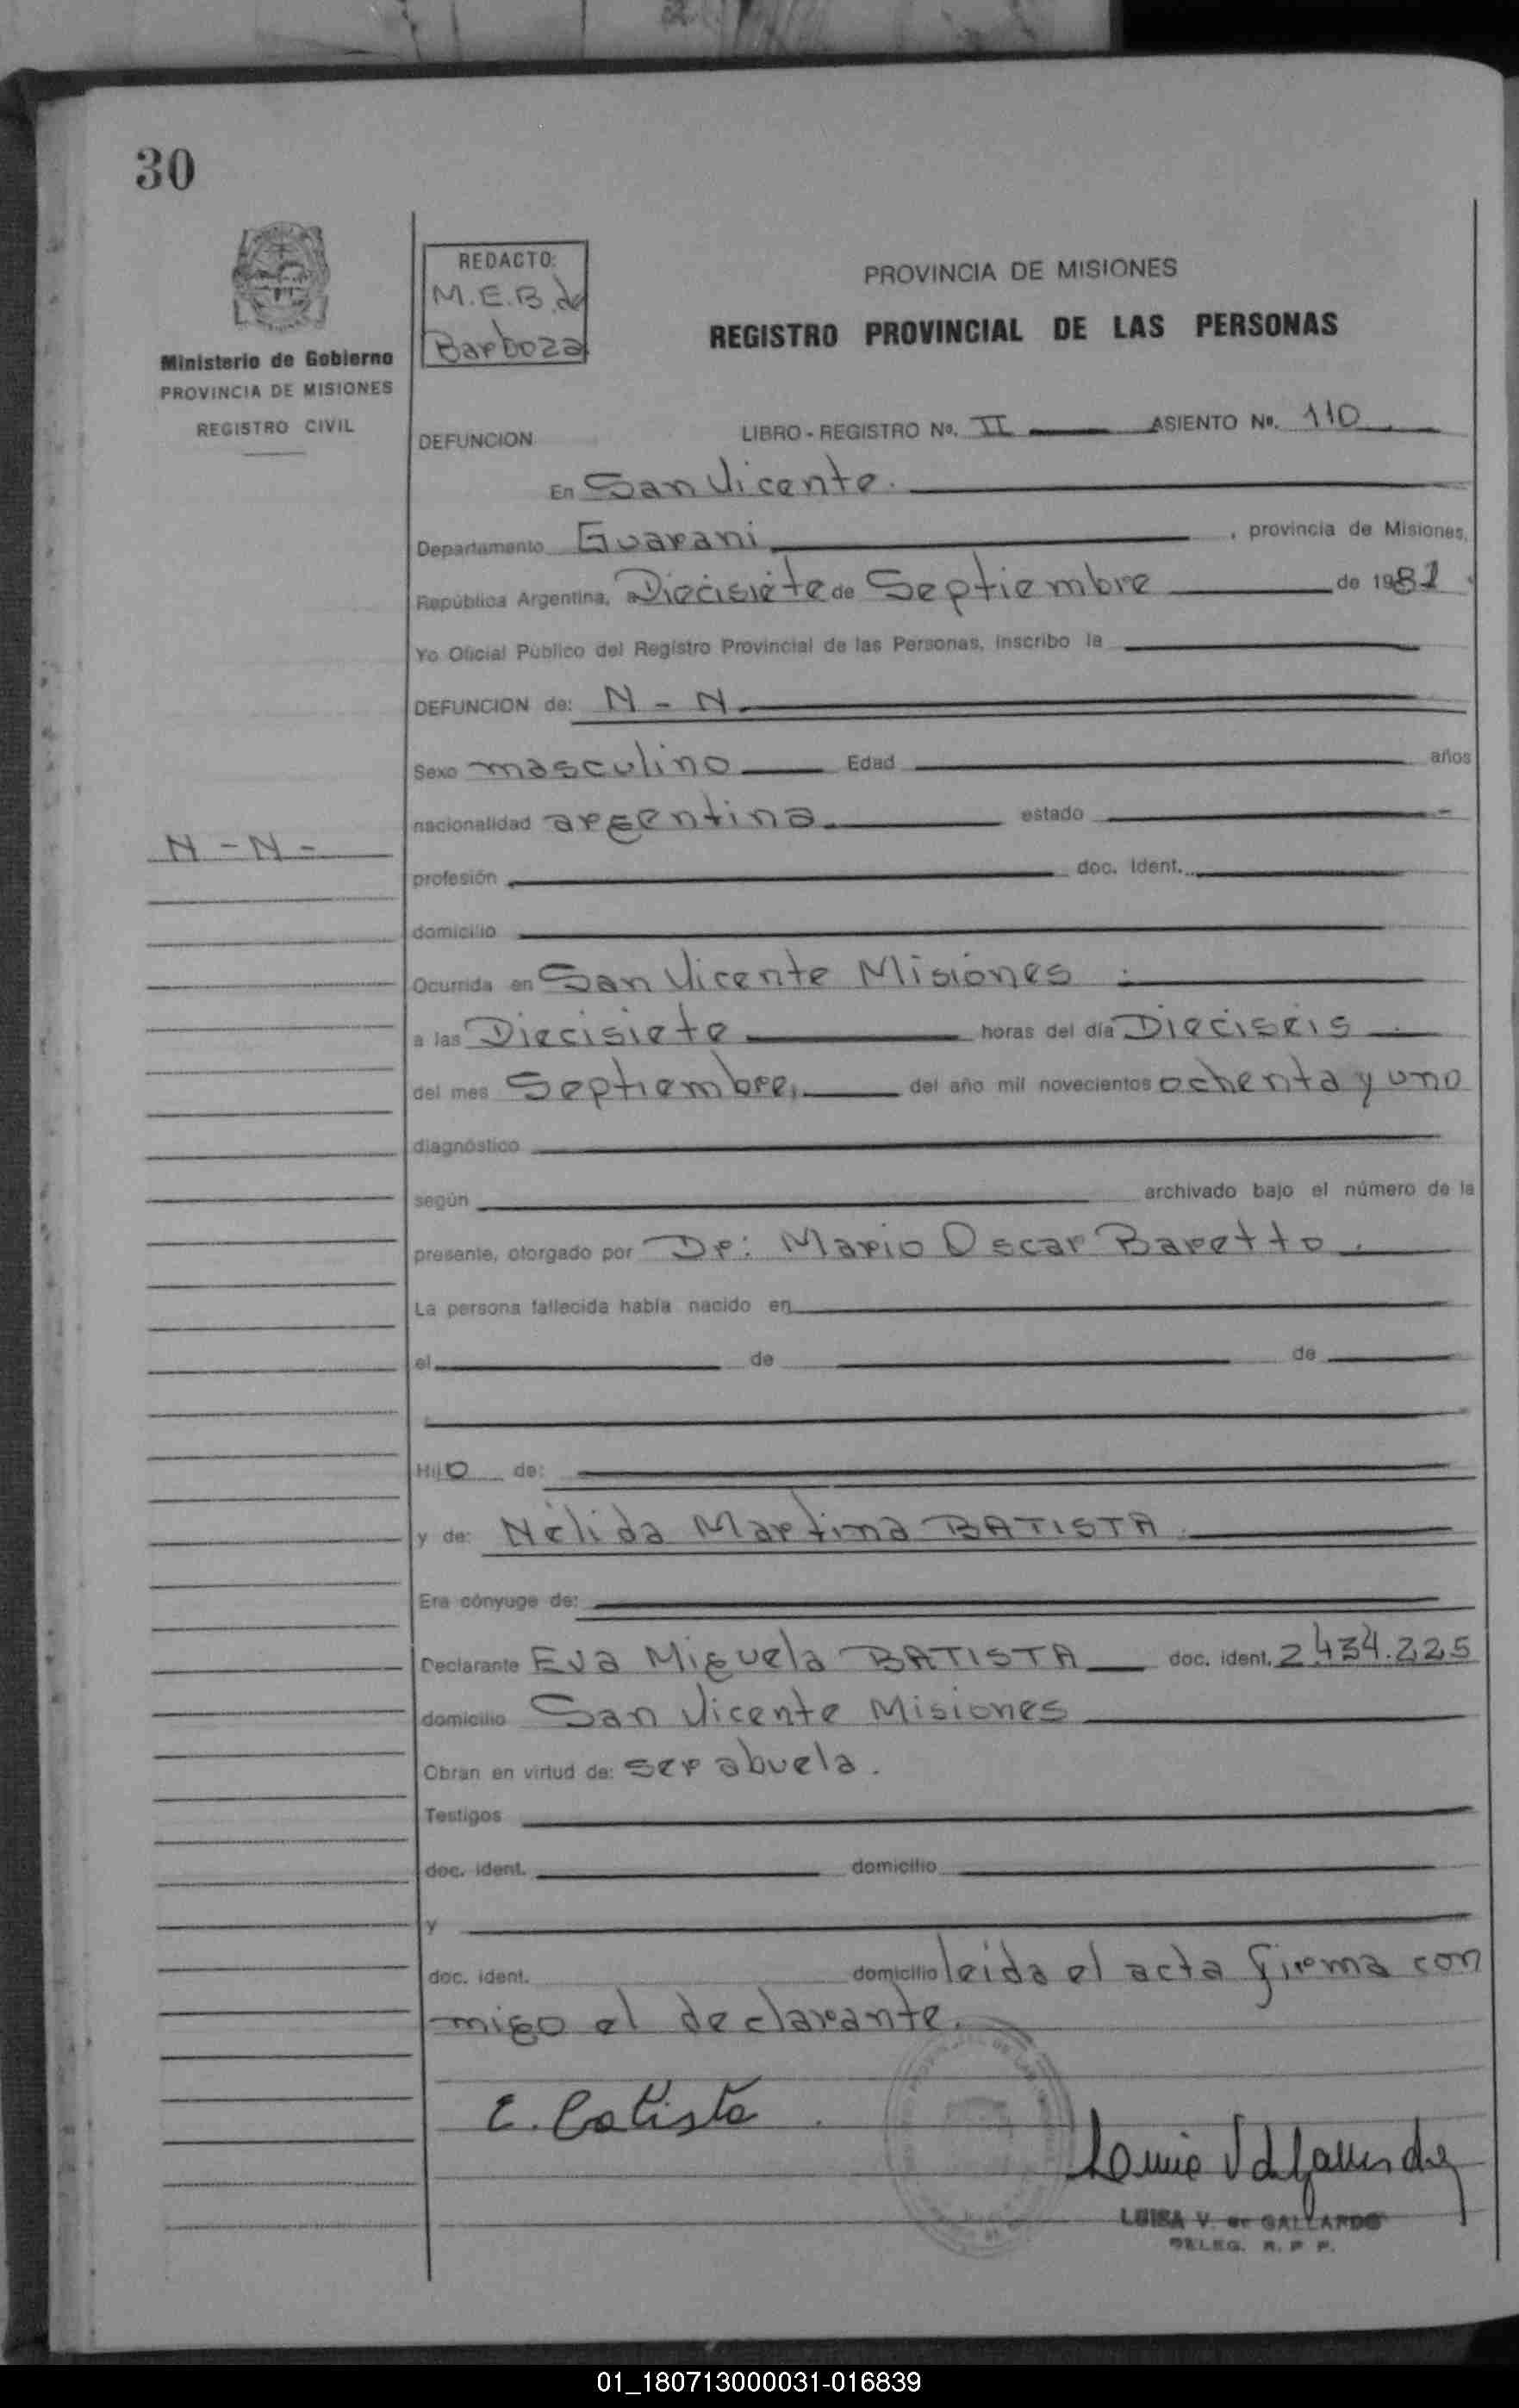 30
Ministerio de Gobierno
PROVINCIA DE MISIONES
REGISTRO CIVIL
N - N -
REDACTO:
M.E.B. de
Barboza
PROVINCIA DE MISIONES
REGISTRO PROVINCIAL DE LAS PERSONAS
DEFUNCION LIBRO - REGISTRO Nº. II ASIENTO Nº. 110
En San Vicente.
Departamento Guarani , provincia de Misiones,
República Argentina, a Diecisiete de Septiembre de 1981
Yo Oficial Público del Registro Provincial de las Personas, inscribo la
DEFUNCION de: N - N.
Sexo masculino Edad años
nacionalidad argentina. estado
profesión doc. ident.
domicilio
Ocurrida en San Vicente Misiones
a las Diecisiete horas del día Dieciseis
del mes Septiembre, del año mil novecientos ochenta y uno
diagnóstico
según archivado bajo el número de la
presente, otorgado por Dr: Mario Oscar Baretto.
La persona fallecida había nacido en
el de de
Hijo de:
y de: Nélida Martina BATISTA
Era cónyuge de:
Declarante Eva Miguela BATISTA doc. ident. 2.434.225
domicilio San Vicente Misiones
Obran en virtud de: ser abuela.
Testigos
doc. ident. domicilio
y
doc. ident. domicilio leida el acta firma con
migo el declarante.
E. Batista
LUISA V. de GALLARDO
DELEG. R. P. P.
01_180713000031-016839